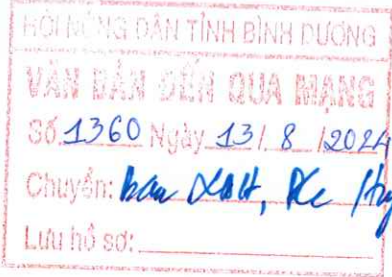 HỘI NÔNG DÂN TỈNH BÌNH DƯƠNG
VĂN BẢN ĐẾN QUA MẠNG
Số 1360 Ngày 13/ 8 /2024
Chuyển: ban
Lưu hồ sơ: